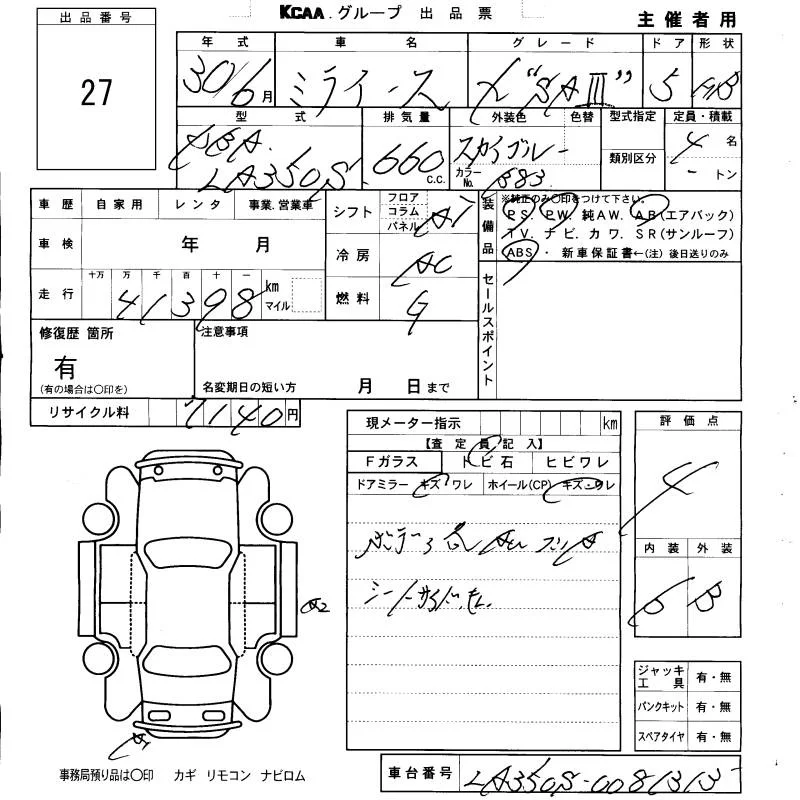 出品番号
27
KCAA.グループ 出品票
主催者用
年式 車名 グレード ドア 形状
30/6月 ミライース X "SAⅢ" 5 HB
型式 排気量 外装色 色替 型式指定 定員・積載
DBA-
LA350S 660 C.C. スカイブルー 4名
カラーNo. B83 類別区分 - トン
車歴 自家用 レンタ 事業.営業車
車検 年 月
十万 万 千 百 十 一
走行 41398 km マイル
シフト フロア コラム パネル AT
冷房 AC
燃料 G
装備品
※純正のみ〇印をつけて下さい。
PS. PW. 純AW. AB(エアバック)
TV. ナビ. カワ. SR(サンルーフ)
ABS・ 新車保証書←(注) 後日送りのみ
セールスポイント
修復歴 箇所
有
(有の場合は〇印を)
注意事項
名変期日の短い方 月 日まで
リサイクル料 7140円
現メーター指示 km
【査定員記入】
Fガラス トビ石 ヒビワレ
ドアミラー キズ・ワレ ホイール(CP) キズ・ワレ
評価点
4
内装 外装
B B
A2
A1
ジャッキ 工具 有・無
パンクキット 有・無
スペアタイヤ 有・無
事務局預り品は〇印 カギ リモコン ナビロム
車台番号 LA350S-0081313